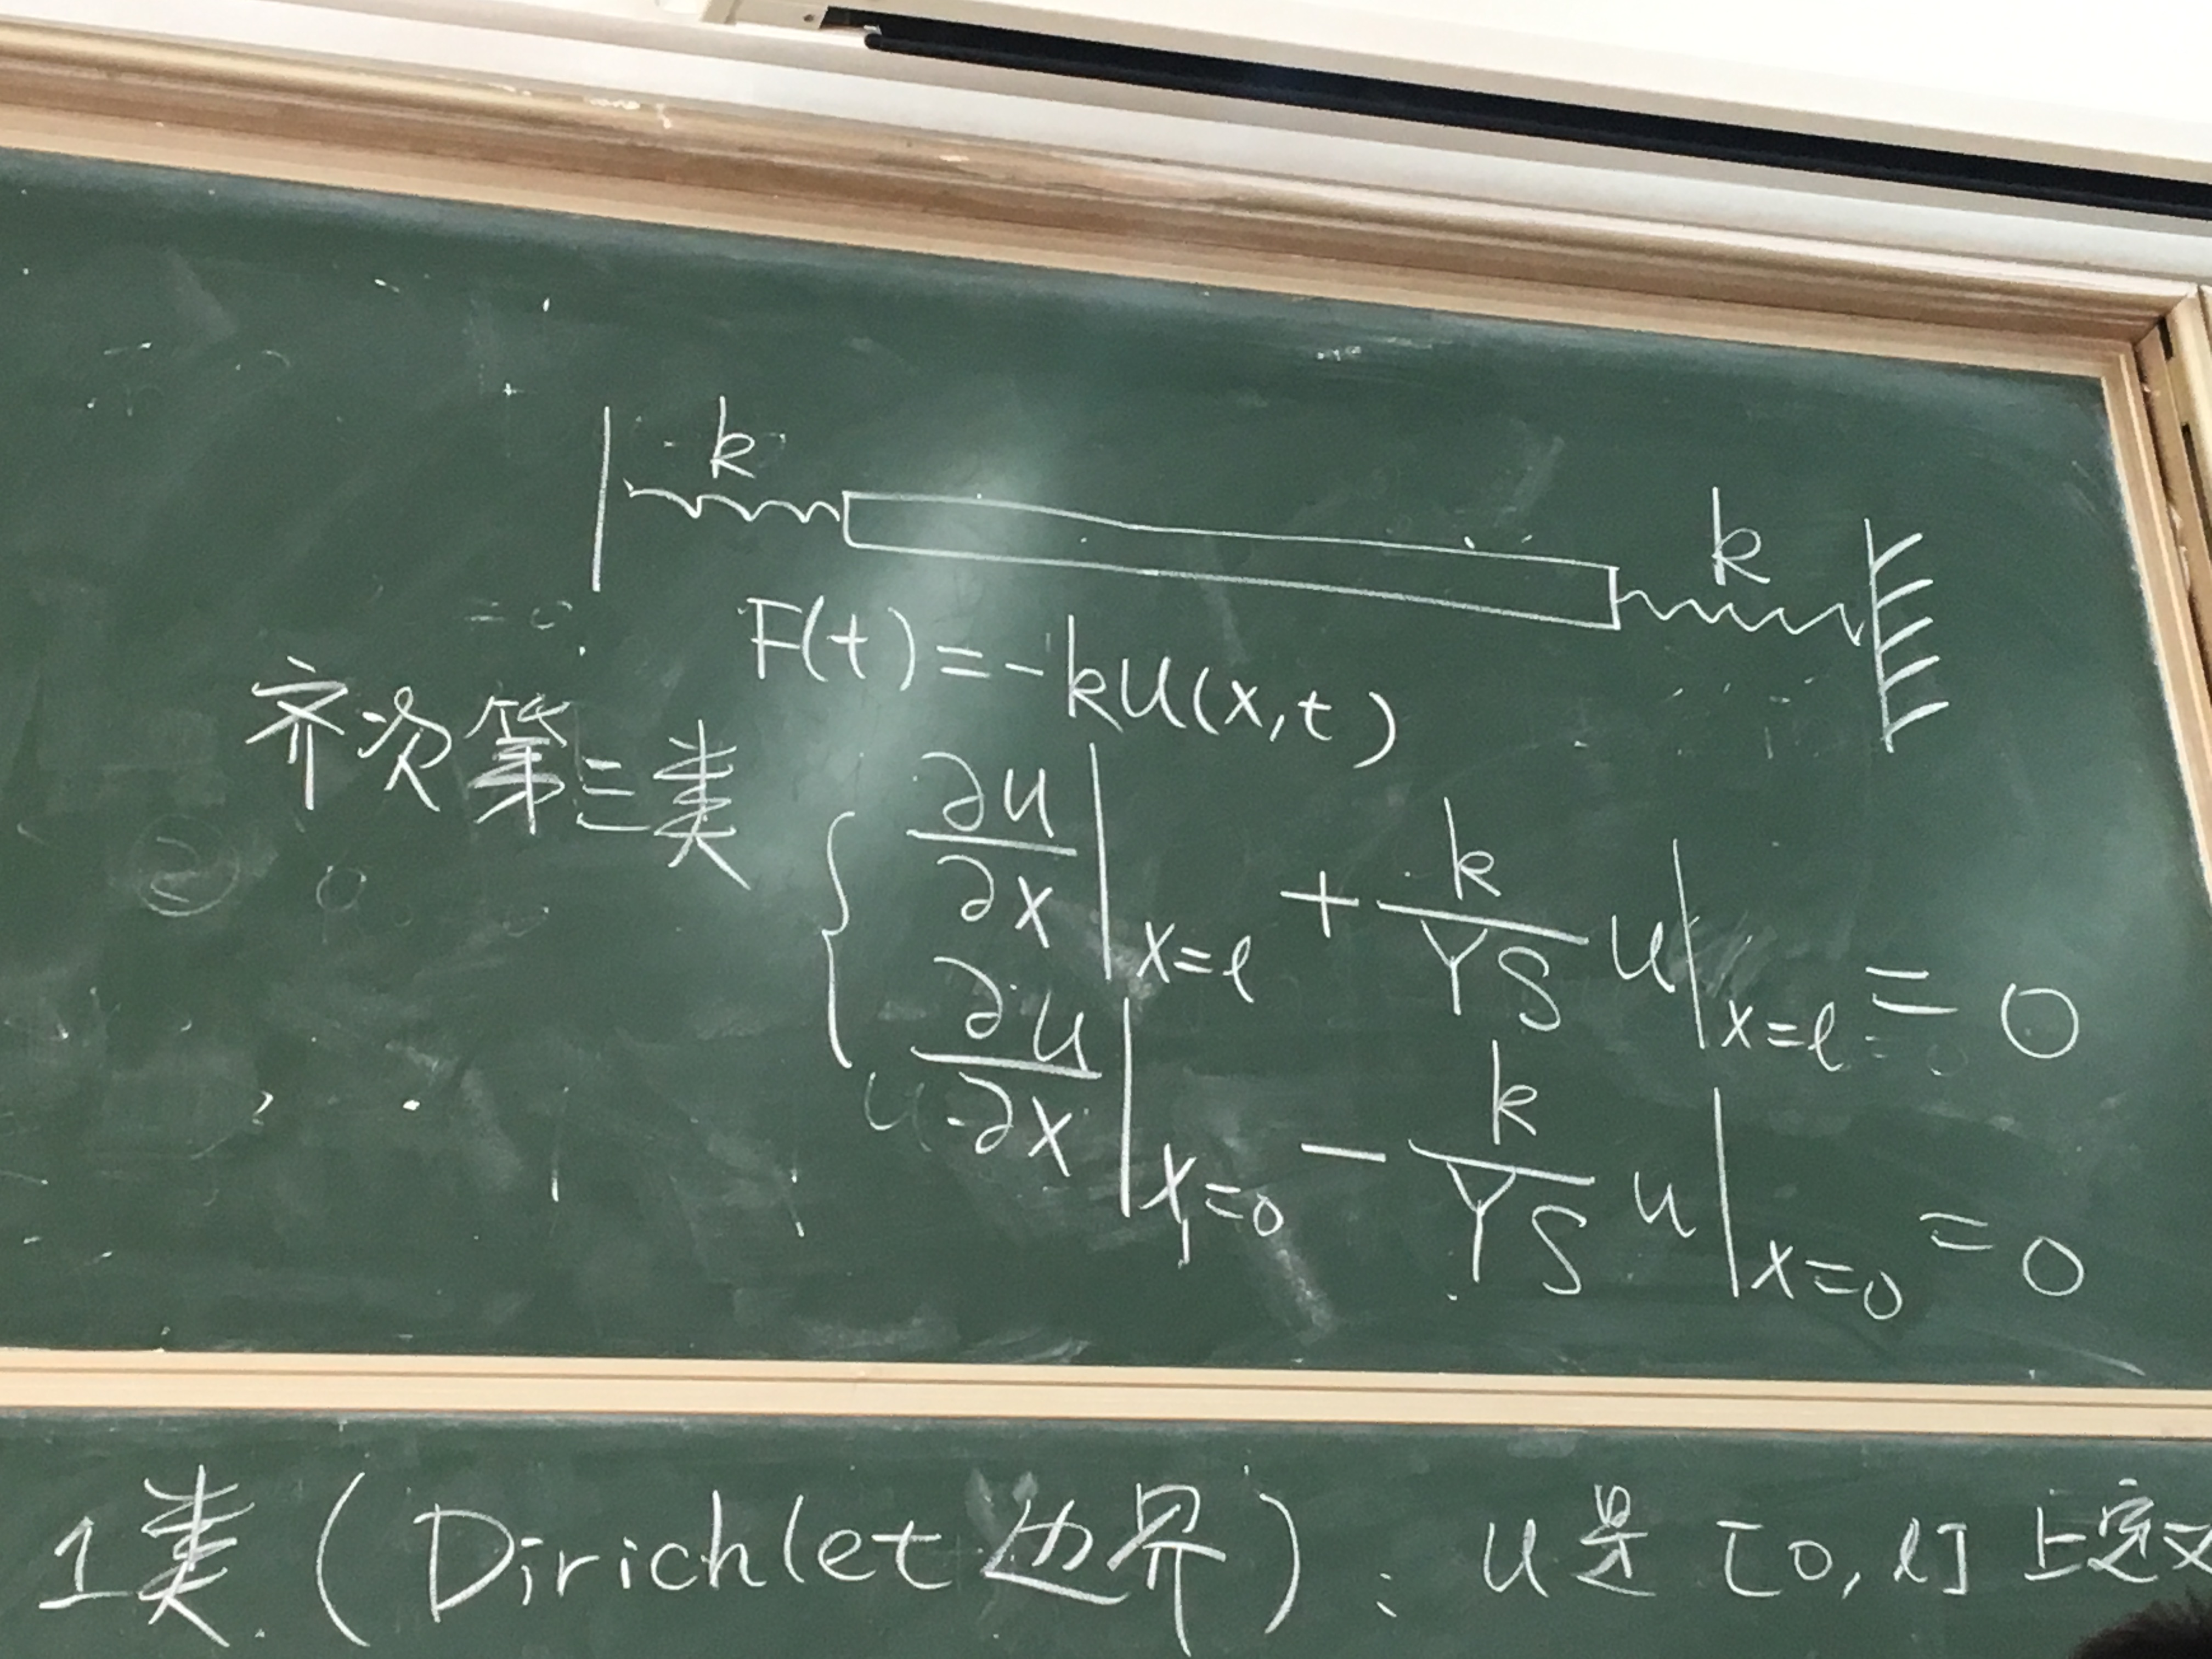 k
k
F(t)=-ku(x,t)
齐次第三类
∂u/∂x|x=l + k/YS u|x=l = 0
∂u/∂x|x=0 - k/YS u|x=0 = 0
1类(Dirichlet边界): u是[0,l]上定义